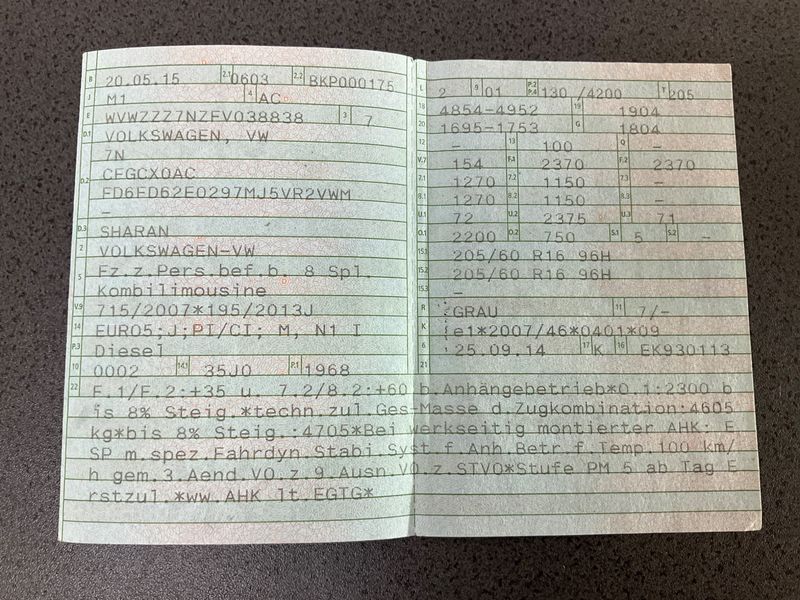 B 20.05.15 2.1 0603 2.2 BKP000175
J M1 4 AC
E WVWZZZ7NZFV038838 3 7
D.1 VOLKSWAGEN, VW
7N
D.2 CFGCX0AC
FD6FD62E0297MJ5VR2VWM
–
D.3 SHARAN
2 VOLKSWAGEN-VW
5 Fz.z.Pers.bef.b. 8 Spl.
Kombilimousine
V.9 715/2007*195/2013J
14 EURO5;J;PI/CI; M, N1 I
P.3 Diesel
10 0002 14.1 35J0 P.1 1968
L 2 9 01 P.2 P.4 130 /4200 T 205
18 4854-4952 19 1904
20 1695-1753 G 1804
12 – 13 100 Q –
V.7 154 F.1 2370 F.2 2370
7.1 1270 7.2 1150 7.3 –
8.1 1270 8.2 1150 8.3 –
U.1 72 U.2 2375 U.3 71
O.1 2200 O.2 750 S.1 5 S.2 –
15.1 205/60 R16 96H
15.2 205/60 R16 96H
15.3 –
R GRAU 11 7/-
K e1*2007/46*0401*09
6 25.09.14 17 K 16 EK930113
21
22 F.1/F.2:+35 u. 7.2/8.2:+60 b.Anhängebetrieb*O.1:2300 b
is 8% Steig.*techn.zul.Ges-Masse d.Zugkombination:4605
kg*bis 8% Steig.:4705*Bei werkseitig montierter AHK: E
SP m.spez.Fahrdyn.Stabi.Syst.f.Anh.Betr.f.Temp.100 km/
h gem.3.Aend.VO.z.9.Ausn.VO.z.STVO*Stufe PM 5 ab Tag E
rstzul.*ww.AHK lt.EGTG*